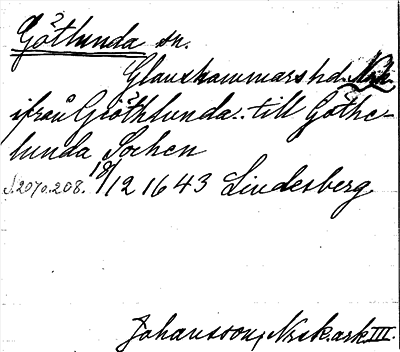 Götlunda sn.
Glanshammars hd. Nrk
ifrån Giöthlunda: till Göthe-
lunda Sochen
J.2070.208. 18/12 1643 Lindesberg
Johansson, Nrsk. ark III.